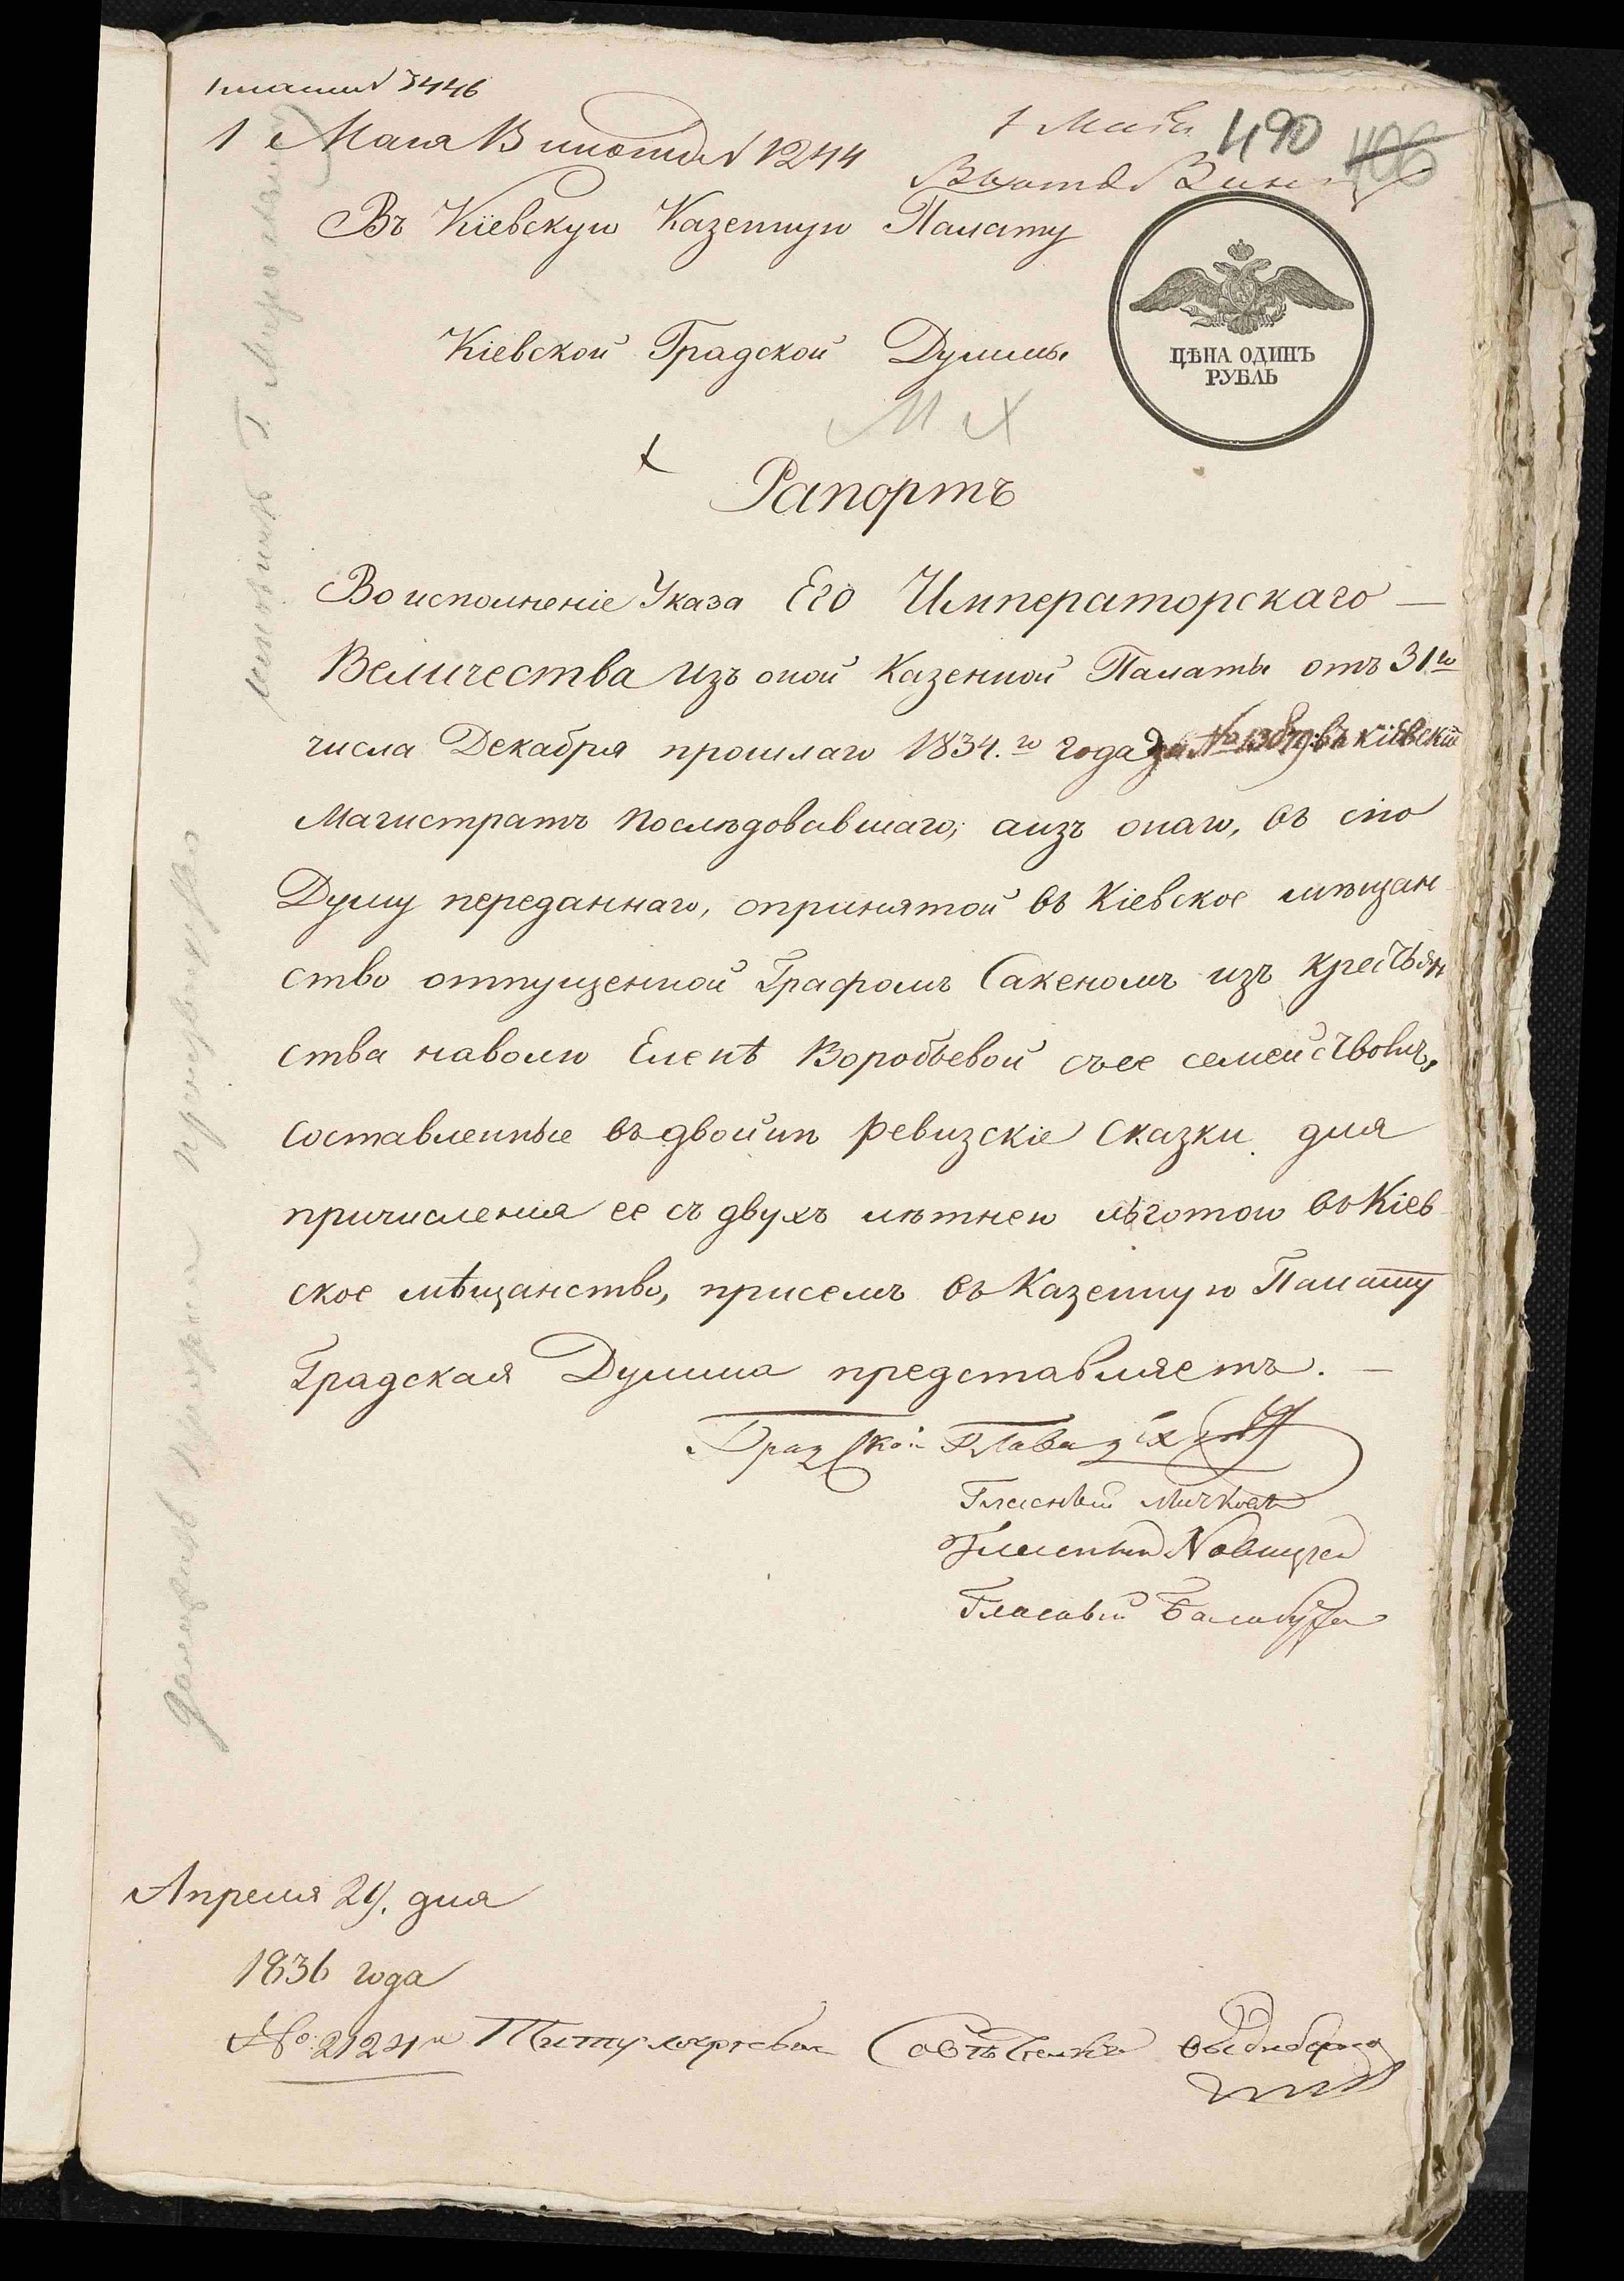 № 3446
1 Мая № 1244
1 Мая
490
406
Въ Кіевскую Казенную Палату
ЦѢНА ОДИНЪ
РУБЛЬ
Кіевской Градской Думмы
Рапортъ
Во исполненіе Указа Его Императорскаго —
Величества изъ оной Казенной Палаты отъ 31го
числа Декабря прошлаго 1834.го года за № въ кіевскій
Магистратъ Послѣдовавшаго, а изъ онаго, въ сію
Думу переданнаго, опринятой въ Кіевское мѣщан
ство отпущенной Графомъ Сакеномъ изъ крестьян
ства наволю Еленѣ Воробьевой съее семействомъ,
составленные въдвойнѣ ревизскіе сказки для
причисленія ее съ двухъ лѣтнею льготою въ Кіев
ское мѣщанство, присемъ въ Казенную Палату
Градская Думма представляетъ. —
Градской Глава
Гласный
Гласный Новицкій
Гласный Балабуха
Апреля 29. дня
1836 года
№ 2124й Титулярный Совѣтникъ